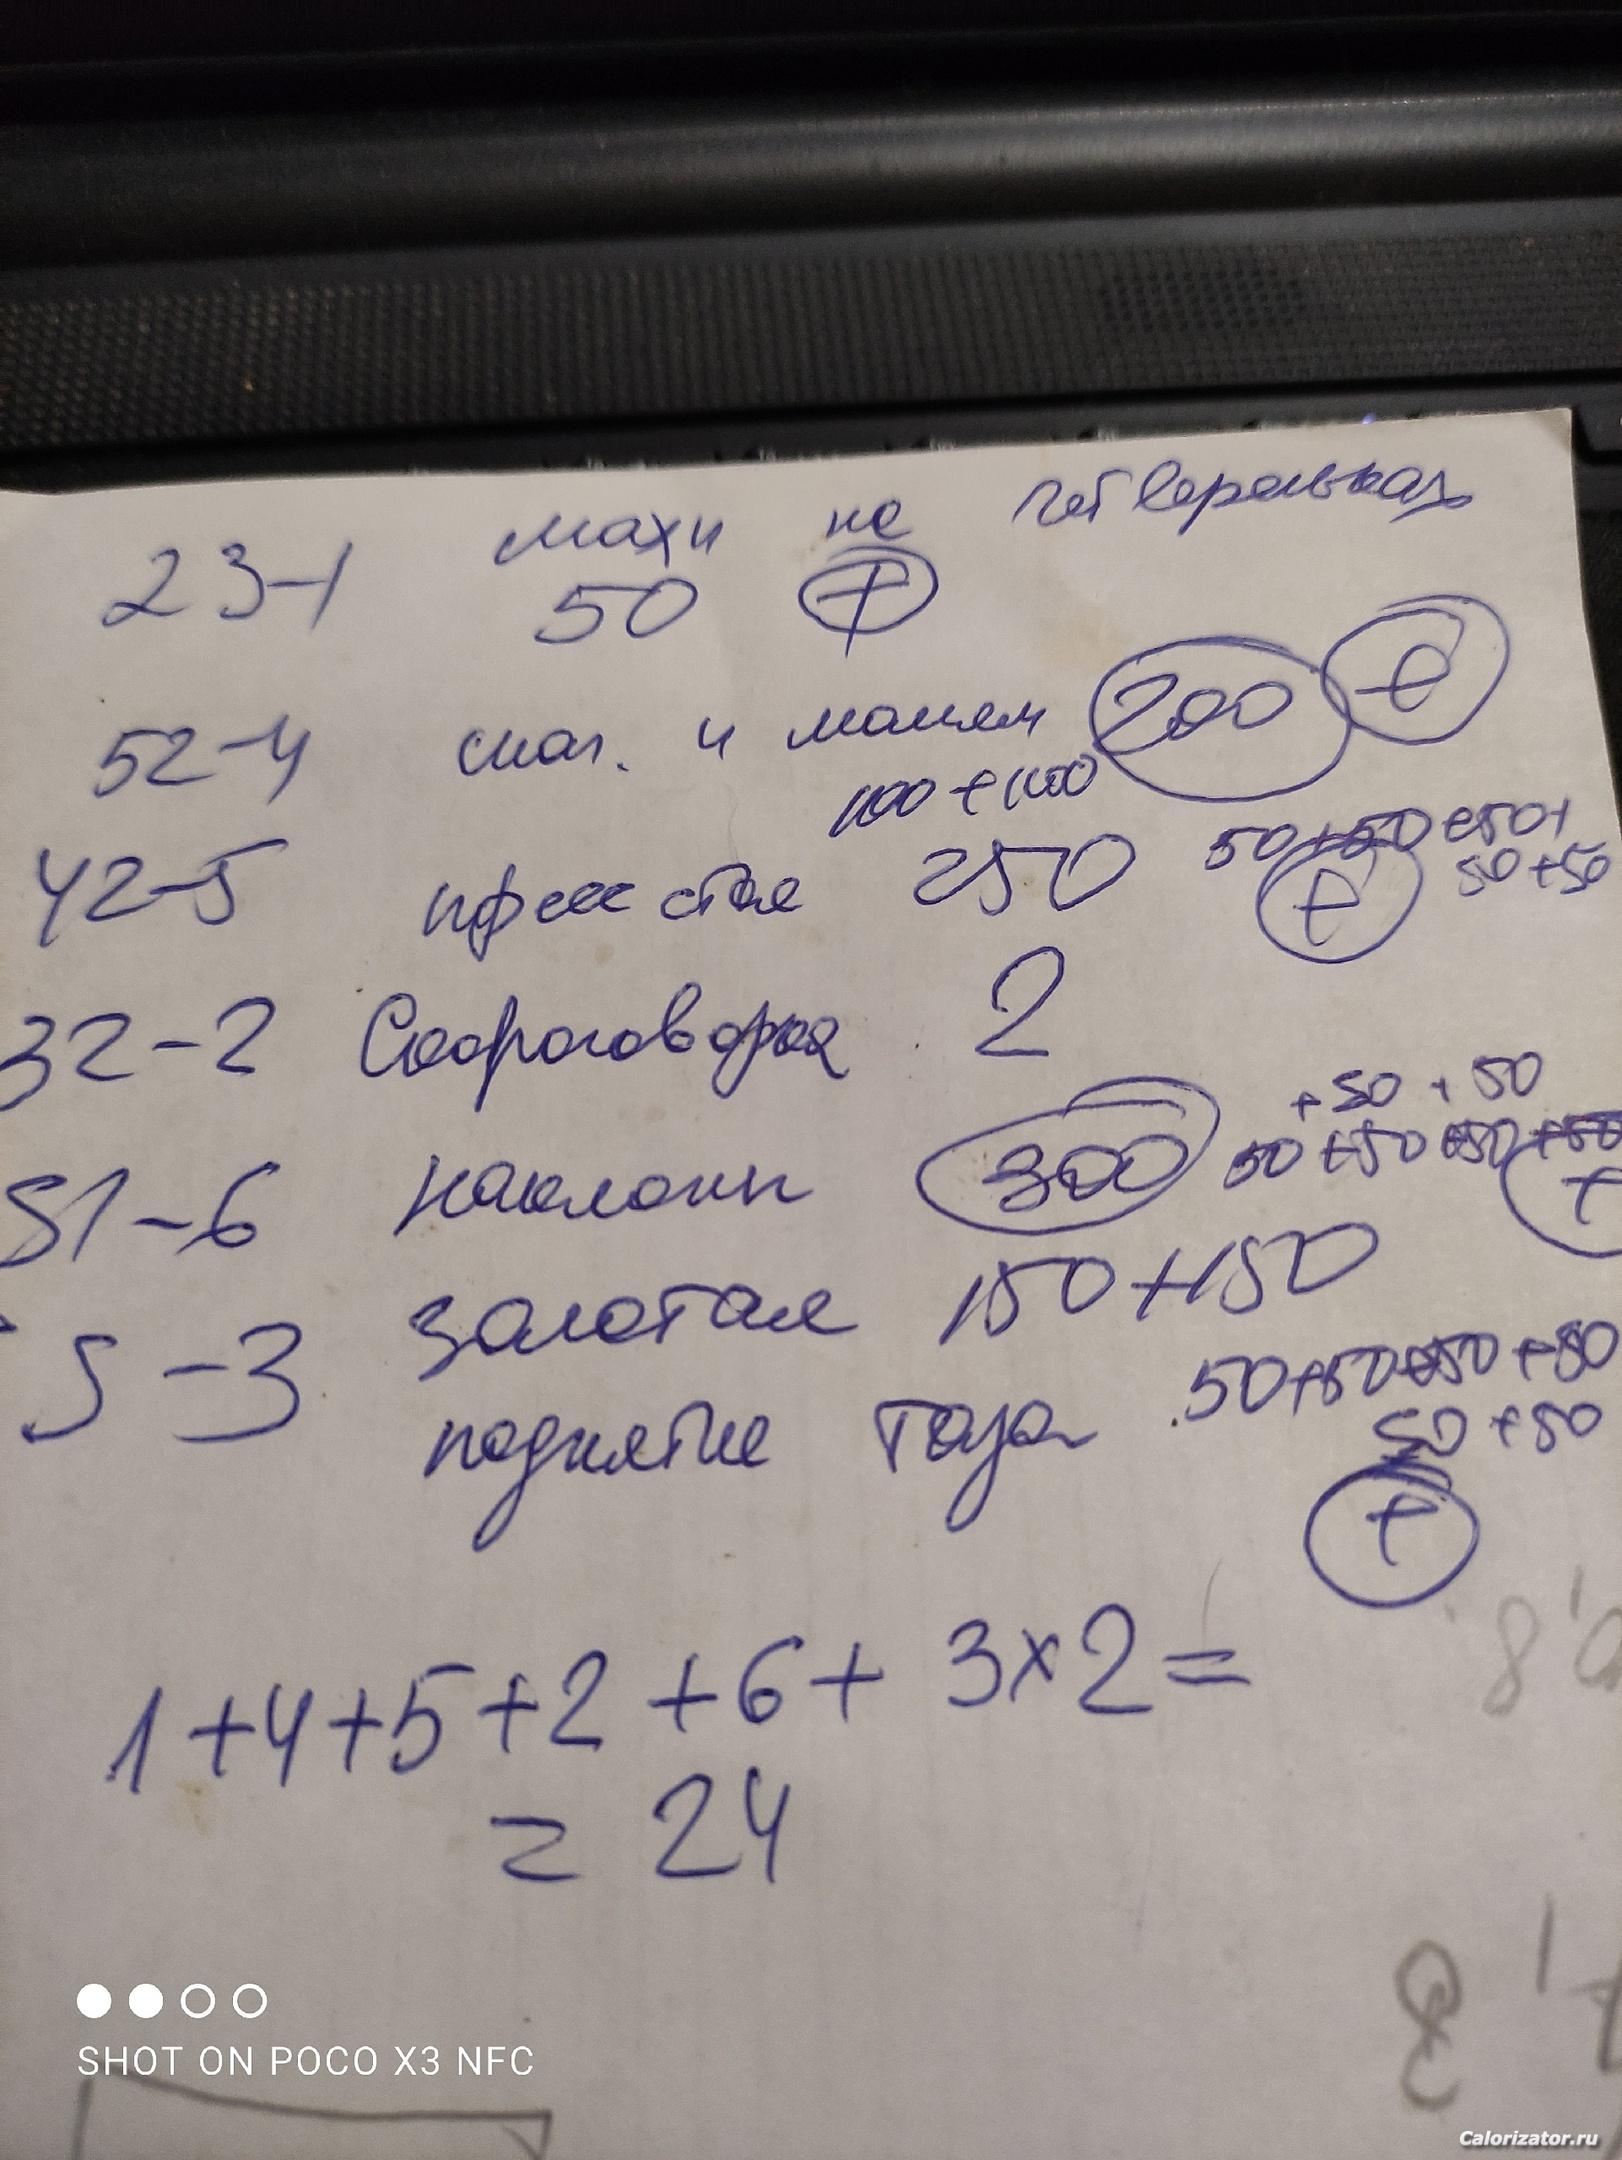 махи на четвереньках
23-1 50 +
52-4 шаг. и машем 200 +
100+100
42-5 пресс стоя 250 50+50+50+
50+50
+
32-2 Скороговорка 2
+50+50
51-6 наклоны 300 50+50+50+50
+
золотая 150+150
5-3
50+50+50+50
поднятие таза 50+50
+
1+4+5+2+6+3×2=
=24
SHOT ON POCO X3 NFC
Calorizator.ru